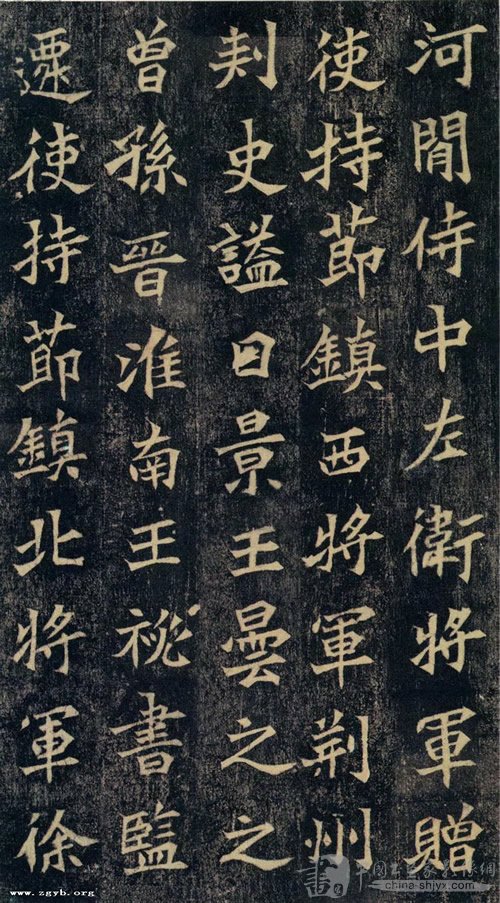 河間侍中左衛將軍贈
使持節鎮西將軍荊州
刾史謚曰景王曇之之
曾孫晉淮南王祕書監
遷使持節鎮北將軍徐
www.zgyb.org
china-shjyx.com